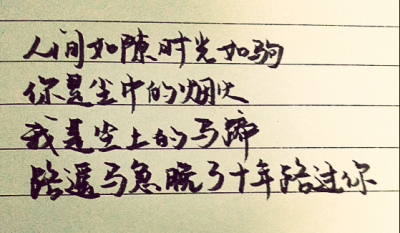 人间如隙时光如驹
你是尘中的烟火
我是尘上的马蹄
路遥马急晚了十年路过你